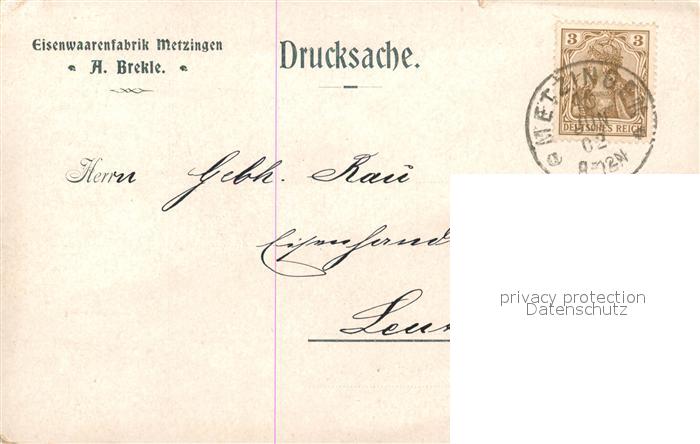 Eisenwaarenfabrik Metzingen
A. Brekle.
Drucksache.
3 3
DEUTSCHES REICH
METZINGEN
16
JUN
02
8-12N
Herrn Gebh. Rau
Eisenhand
Leu
privacy protection
Datenschutz